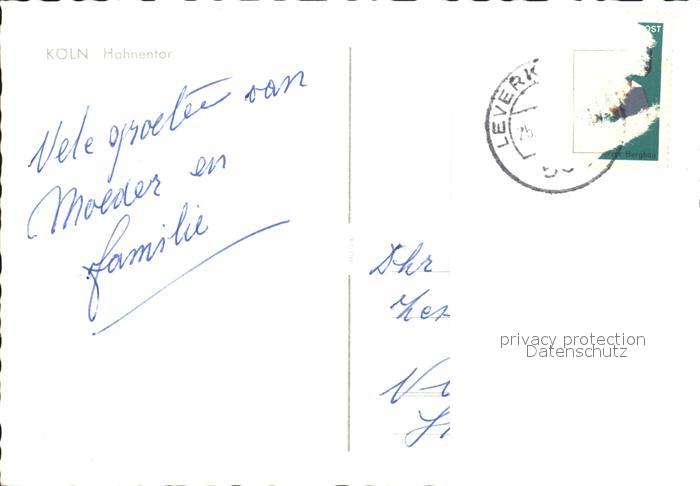 KÖLN Hahnentor
Vele groeten van
Moeder en
familie
LEVERK
25
OST
Bergbau
Dhr
privacy protection
Datenschutz